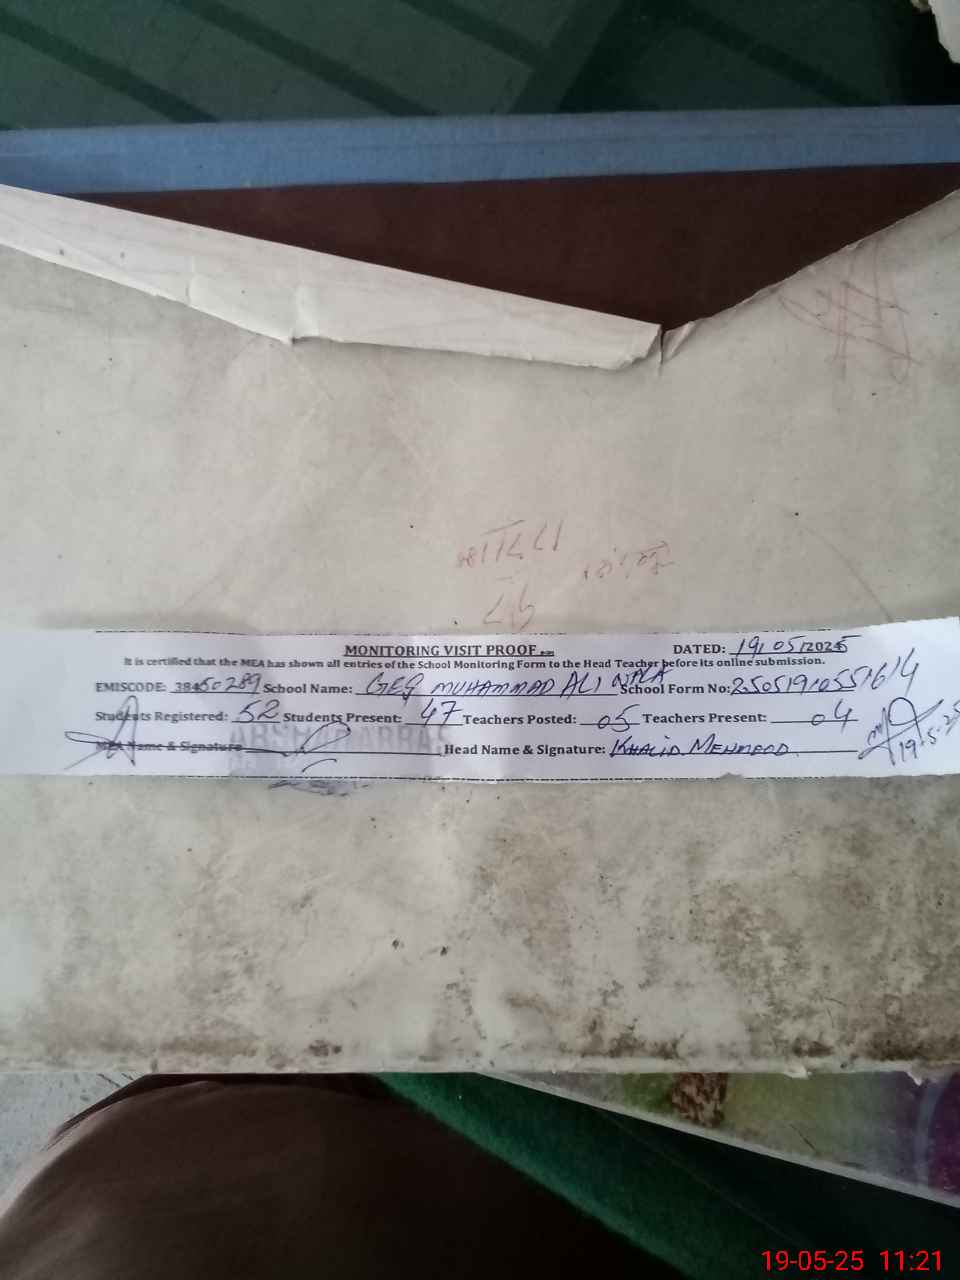 MONITORING VISIT PROOF
DATED: 19/05/2025
It is certified that the MEA has shown all entries of the School Monitoring Form to the Head Teacher before its online submission.
EMISCODE: 38450289 School Name: GES MUHAMMAD ALI WALA School Form No: 25051910551614
Students Registered: 52 Students Present: 47 Teachers Posted: 05 Teachers Present: 04
MEA Name & Signature Head Name & Signature: KHALID MEHMOOD
19-5-25
19-05-25 11:21